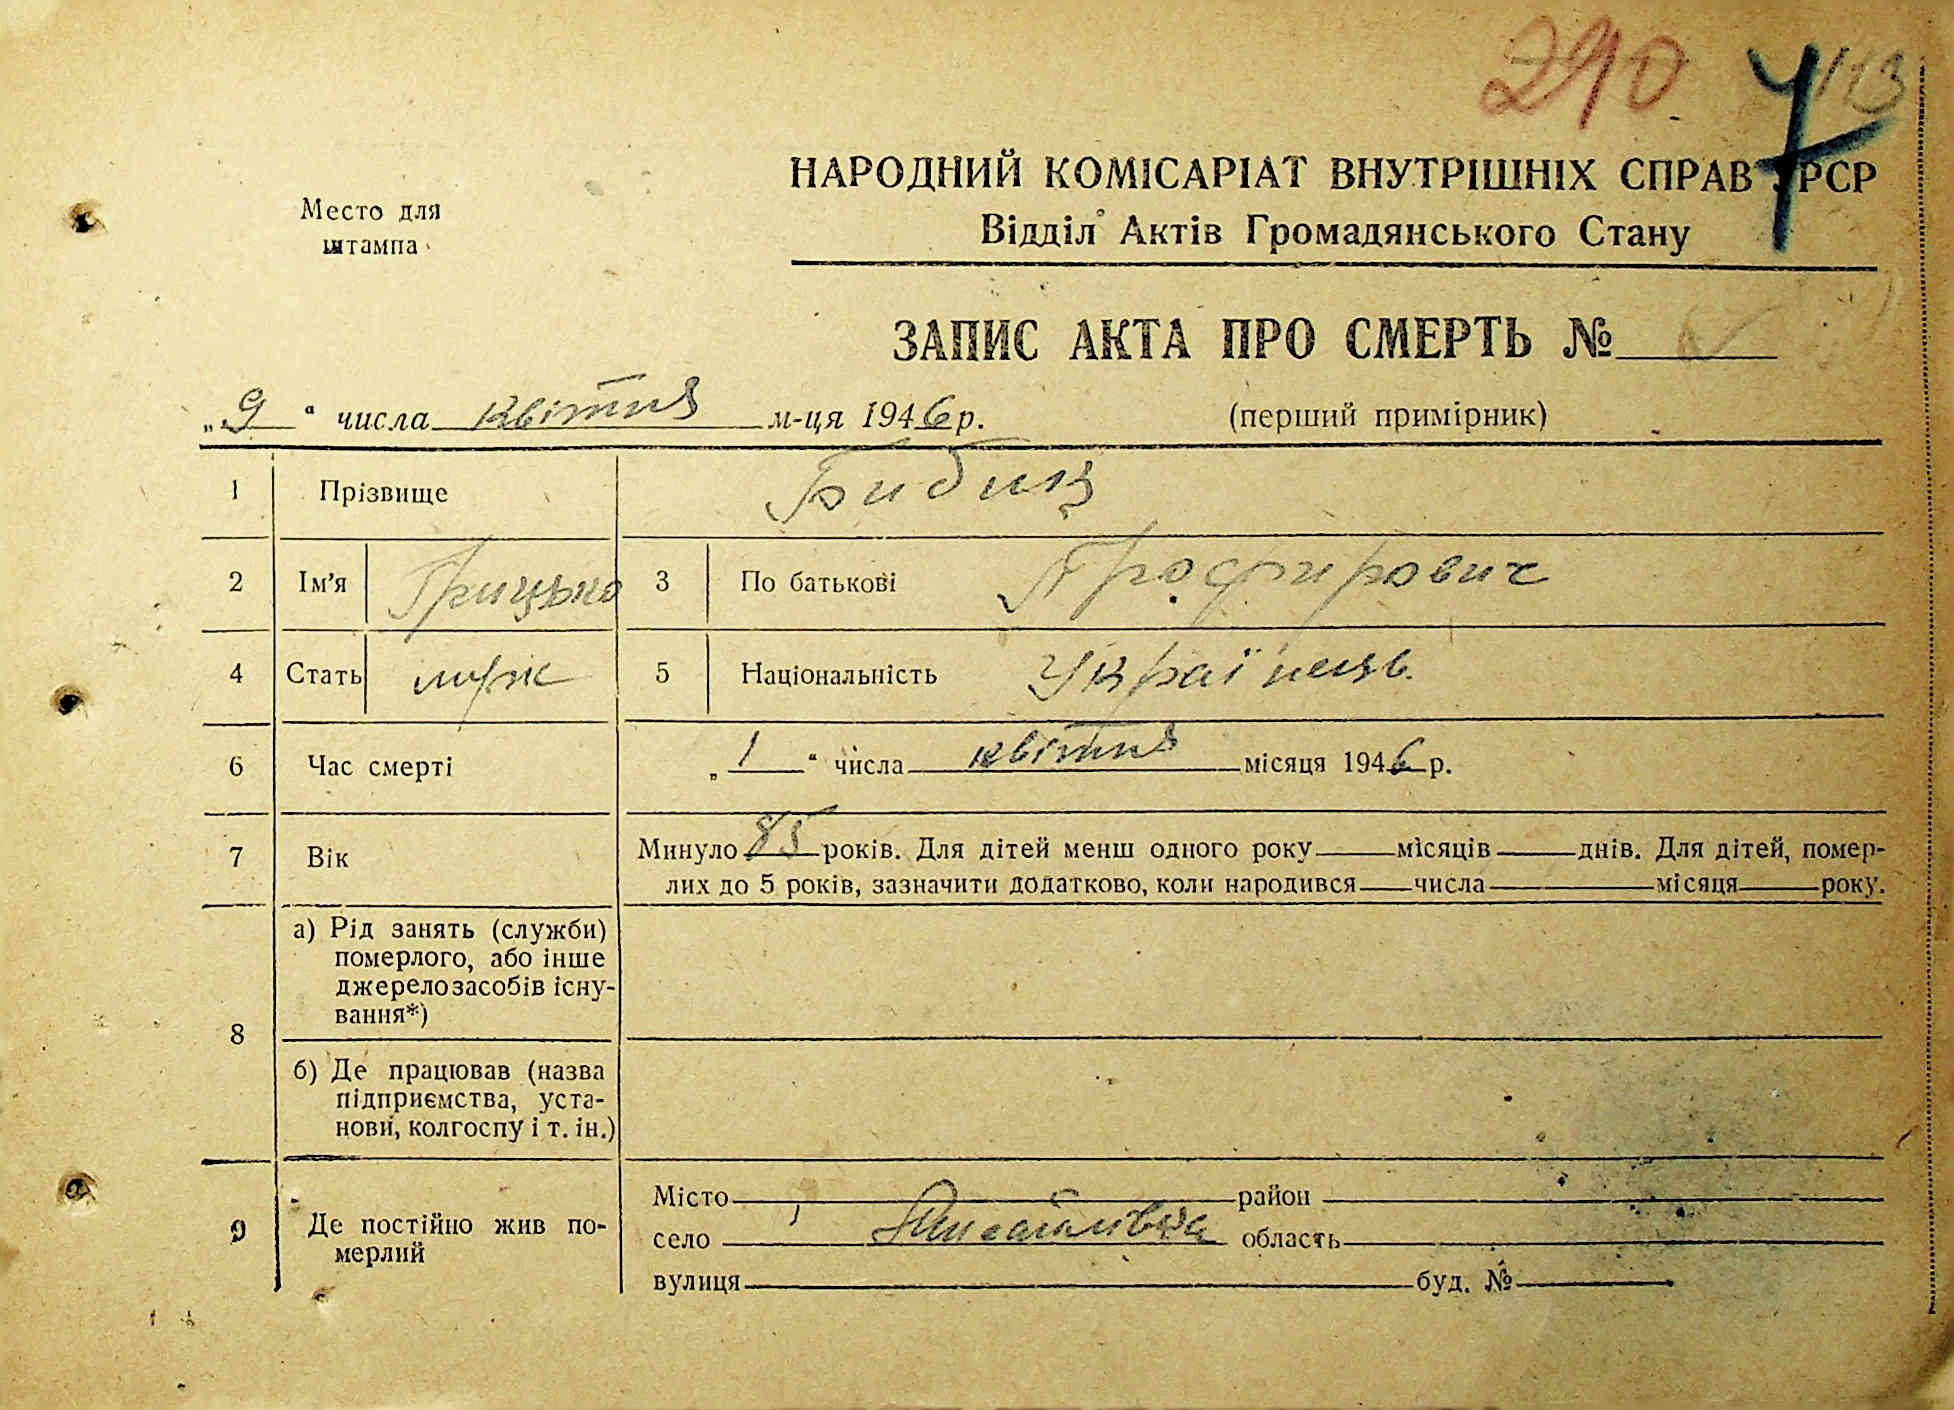 290
НАРОДНИЙ КОМІСАРІАТ ВНУТРІШНІХ СПРАВ УРСР
Место для
штампа
Відділ Актів Громадянського Стану
ЗАПИС АКТА ПРО СМЕРТЬ №
„9“ числа квітня м-ця 1946 р. (перший примірник)
1 Прізвище Бибик
2 Ім'я Грицько 3 По батькові Профирович
4 Стать муж 5 Національність Українець.
6 Час смерті „1“ числа квітня місяця 1946 р.
7 Вік Минуло 85 років. Для дітей менш одного року місяців днів. Для дітей, помер-
лих до 5 років, зазначити додатково, коли народився числа місяця року.
8 а) Рід занять (служби)
померлого, або інше
джерело засобів існу-
вання*)
б) Де працював (назва
підприємства, уста-
нови, колгоспу і т. ін.)
9 Де постійно жив по-
мерлий
Місто район
село область
вулиця буд. №